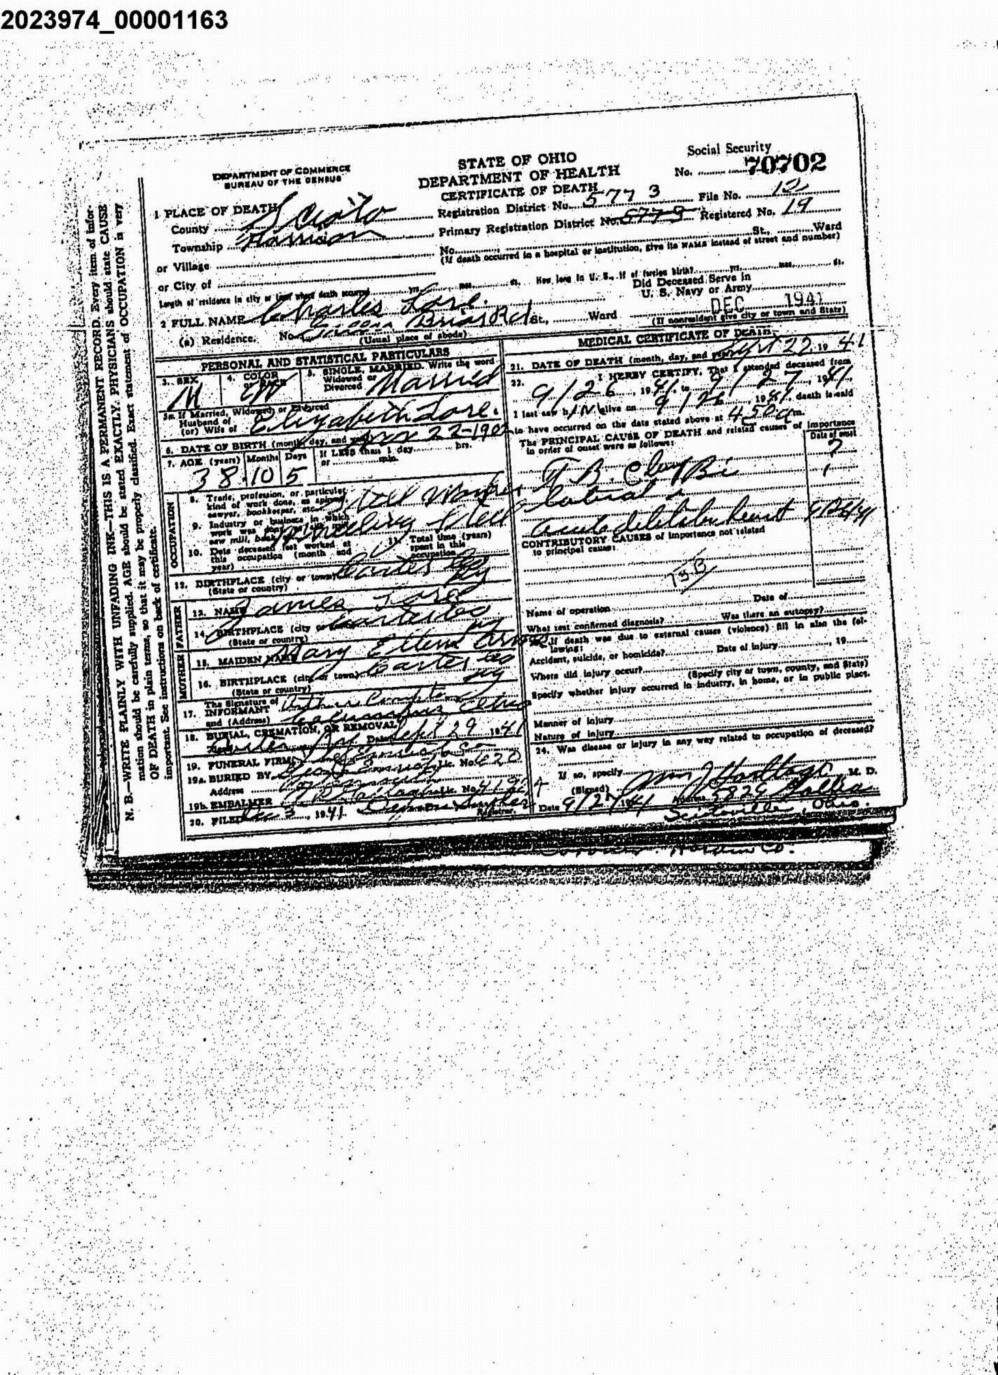 2023974_00001163
DEPARTMENT OF COMMERCE
BUREAU OF THE CENSUS
STATE OF OHIO
DEPARTMENT OF HEALTH
CERTIFICATE OF DEATH
Social Security
No. 70702
1 PLACE OF DEATH
County Scioto
Township Harrison
or Village
or City of
Registration District No. 577 3 File No. 12
Primary Registration District No. 577 3 Registered No. 19
No. St., Ward
(If death occurred in a hospital or institution, give its NAME instead of street and number)
Length of residence in city or town where death occurred yrs. mos. ds. How long in U. S., if of foreign birth? yrs. mos. ds.
2 FULL NAME Charles Lore.
Did Deceased Serve in
U. S. Navy or Army
(a) Residence. No. Green Briar Rd St., Ward
(Usual place of abode)
DEC 1941
(If nonresident give city or town and State)
PERSONAL AND STATISTICAL PARTICULARS
3. SEX M
4. COLOR W
5. SINGLE, MARRIED, Write the word
Widowed or
Divorced Married
5a. If Married, Widowed or Divorced
Husband of
(or) Wife of Elizabeth Lore.
6. DATE OF BIRTH (month, day, and 22-190
7. AGE (years) Months Days If LESS than 1 day hrs.
or min.
38 10 5
OCCUPATION
8. Trade, profession, or particular
kind of work done, as spinner,
sawyer, bookkeeper, etc. Steel Worker
9. Industry or business in which
work was done, as silk mill,
saw mill, bank, Steel
10. Date deceased last worked at
this occupation (month and
year)
11. Total time (years)
spent in this
occupation
12. BIRTHPLACE (city or town) Carter Co
(State or country) Ky
FATHER
13. NAME James Lore
14. BIRTHPLACE (city or Carter Co
(State or country) Ky
MOTHER
15. MAIDEN NAME Mary Ellen
16. BIRTHPLACE (city or town) Carter Co
(State or country) Ky
17. The Signature of
INFORMANT Compton
and (Address) Ohio
18. BURIAL, CREMATION, OR REMOVAL
Date Sept 29, 1941
19. FUNERAL FIRM Lic. No. 620
19a. BURIED BY
Address
19b. EMBALMER Lic. No. 4196 A
20. FILED Dec 3, 1941
Registrar.
MEDICAL CERTIFICATE OF DEATH
21. DATE OF DEATH (month, day, and year) Sept 27, 19 41
22. I HEREBY CERTIFY, That I attended deceased from
9/26, 1941, to 9/27, 1941.
I last saw h im alive on 9/26, 1941, death is said
to have occurred on the date stated above at 4:50 a m.
The PRINCIPAL CAUSE OF DEATH and related causes of importance
in order of onset were as follows:
Date of onset
T B.
acute dilatation heart
CONTRIBUTORY CAUSES of importance not related
to principal cause:
Name of operation Date of
What test confirmed diagnosis? Was there an autopsy?
23. If death was due to external causes (violence) fill in also the fol-
lowing:
Accident, suicide, or homicide? Date of injury 19
Where did injury occur?
(Specify city or town, county, and State)
Specify whether injury occurred in industry, in home, or in public place.
Manner of injury
Nature of injury
24. Was disease or injury in any way related to occupation of deceased?
If so, specify
(Signed) M. D.
Date 9/27, 1941 Address 5829 Gallia
Sciotoville, Ohio.
N. B.—WRITE PLAINLY WITH UNFADING INK—THIS IS A PERMANENT RECORD. Every item of infor-
mation should be carefully supplied. AGE should be stated EXACTLY. PHYSICIANS should state CAUSE
OF DEATH in plain terms, so that it may be properly classified. Exact statement of OCCUPATION is very
important. See instructions on back of certificate.